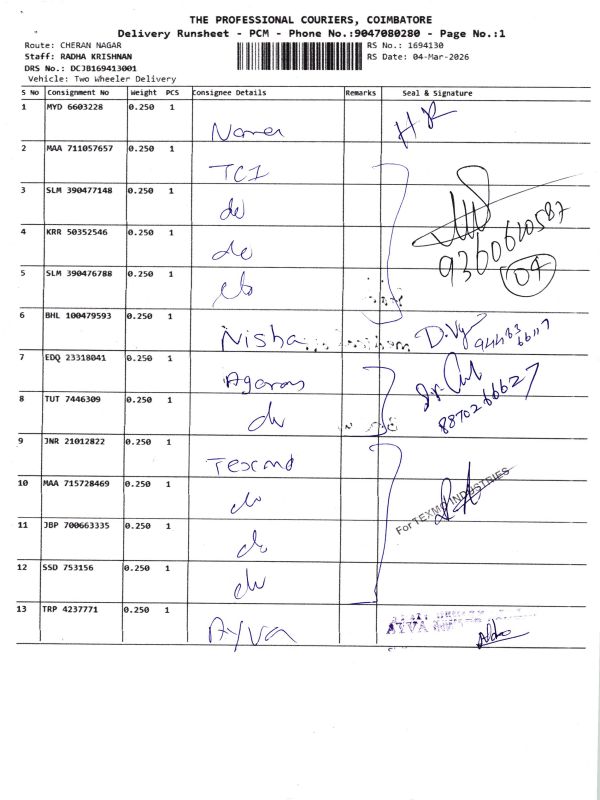 THE PROFESSIONAL COURIERS, COIMBATORE
Delivery Runsheet - PCM - Phone No.:9047080280 - Page No.:1
Route: CHERAN NAGAR RS No.: 1694130
Staff: RADHA KRISHNAN RS Date: 04-Mar-2026
DRS No.: DCJB169413001
Vehicle: Two Wheeler Delivery
S No Consignment No Weight PCS Consignee Details Remarks Seal & Signature
1 MYD 6603228 0.250 1
2 MAA 711057657 0.250 1 TCI
3 SLM 390477148 0.250 1 do
4 KRR 50352546 0.250 1 do
9360610587
04
5 SLM 390476788 0.250 1 do
6 BHL 100479593 0.250 1 Nisha
7 EDQ 23318041 0.250 1
8 TUT 7446309 0.250 1 do
8870266627
9 JNR 21012822 0.250 1
10 MAA 715728469 0.250 1 do
For TEXMO INDUSTRIES
11 JBP 700663335 0.250 1 do
12 SSD 753156 0.250 1 do
13 TRP 4237771 0.250 1 Ayva
AYVA